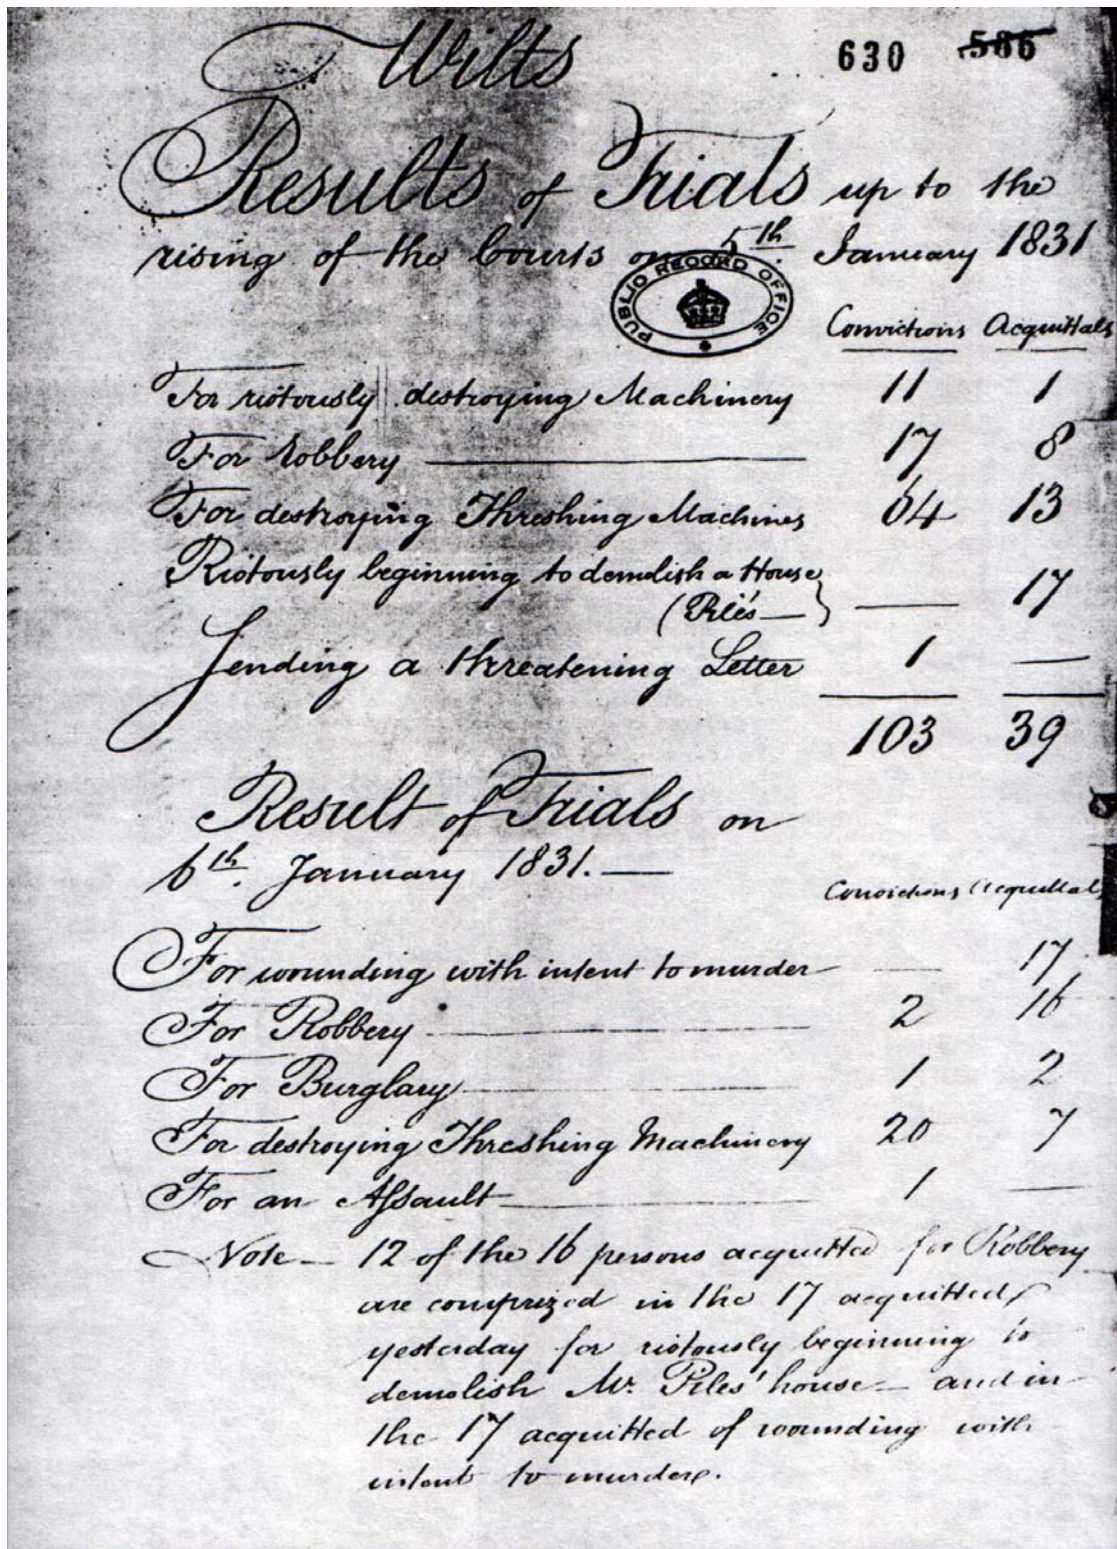 Wilts
630 586
Results of Trials up to the
rising of the Courts on 5th January 1831
PUBLIC RECORD OFFICE
Convictions Acquittals
For riotously destroying Machinery 11 1
For Robbery — 17 8
For destroying Threshing Machines 13
Riotously beginning to demolish a House
(Pile's — } — 17
Sending a threatening Letter 1 —
103 39
Result of Trials on
6th. January 1831. —
Convictions Acquittals
For wounding with intent to murder — 17
For Robbery — 2 16
For Burglary — 1 2
For destroying Threshing Machinery 20 7
For an Assault — 1 —
Note — 12 of the 16 persons acquitted for Robbery
are comprized in the 17 acquitted
yesterday for riotously beginning to
demolish Mr. Piles' house — and in
the 17 acquitted of wounding with
intent to murder.